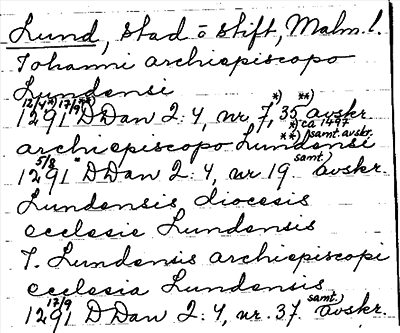 Lund, stad o stift, Malm. l.
Johanni archiepiscopo
Lundensi
12/4*) 17/9**) *) **)
1291 DDan 2:4, nr 7, 35 avskr
*) ca 1497
**) samt. avskr.
archiepiscopo Lundensi
5/8 samt.)
1291 DDan 2:4, nr 19. avskr.
Lundensis diocesis
ecclesie Lundensis
J. Lundensis archiepiscopi
ecclesia Lundensis
17/9 samt.)
1291 DDan 2:4, nr. 37. avskr.